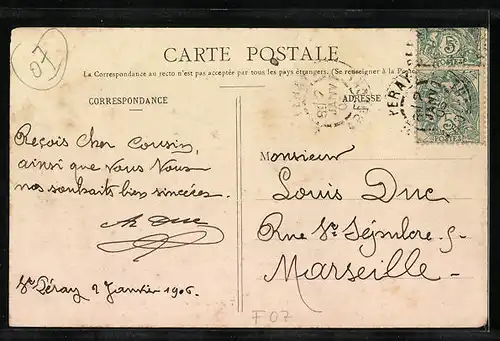 07
CARTE POSTALE
La Correspondance au recto n'est pas acceptée par tous les pays étrangers. (Se renseigner à la
CORRESPONDANCE
ADRESSE
Reçois Cher Cousin,
ainsi que Vous Vous
nos souhaits bien sincères.
Duc
St Péray 2 Janvier 1906.
Monsieur
Louis Duc
Rue
Marseille
F 07
5